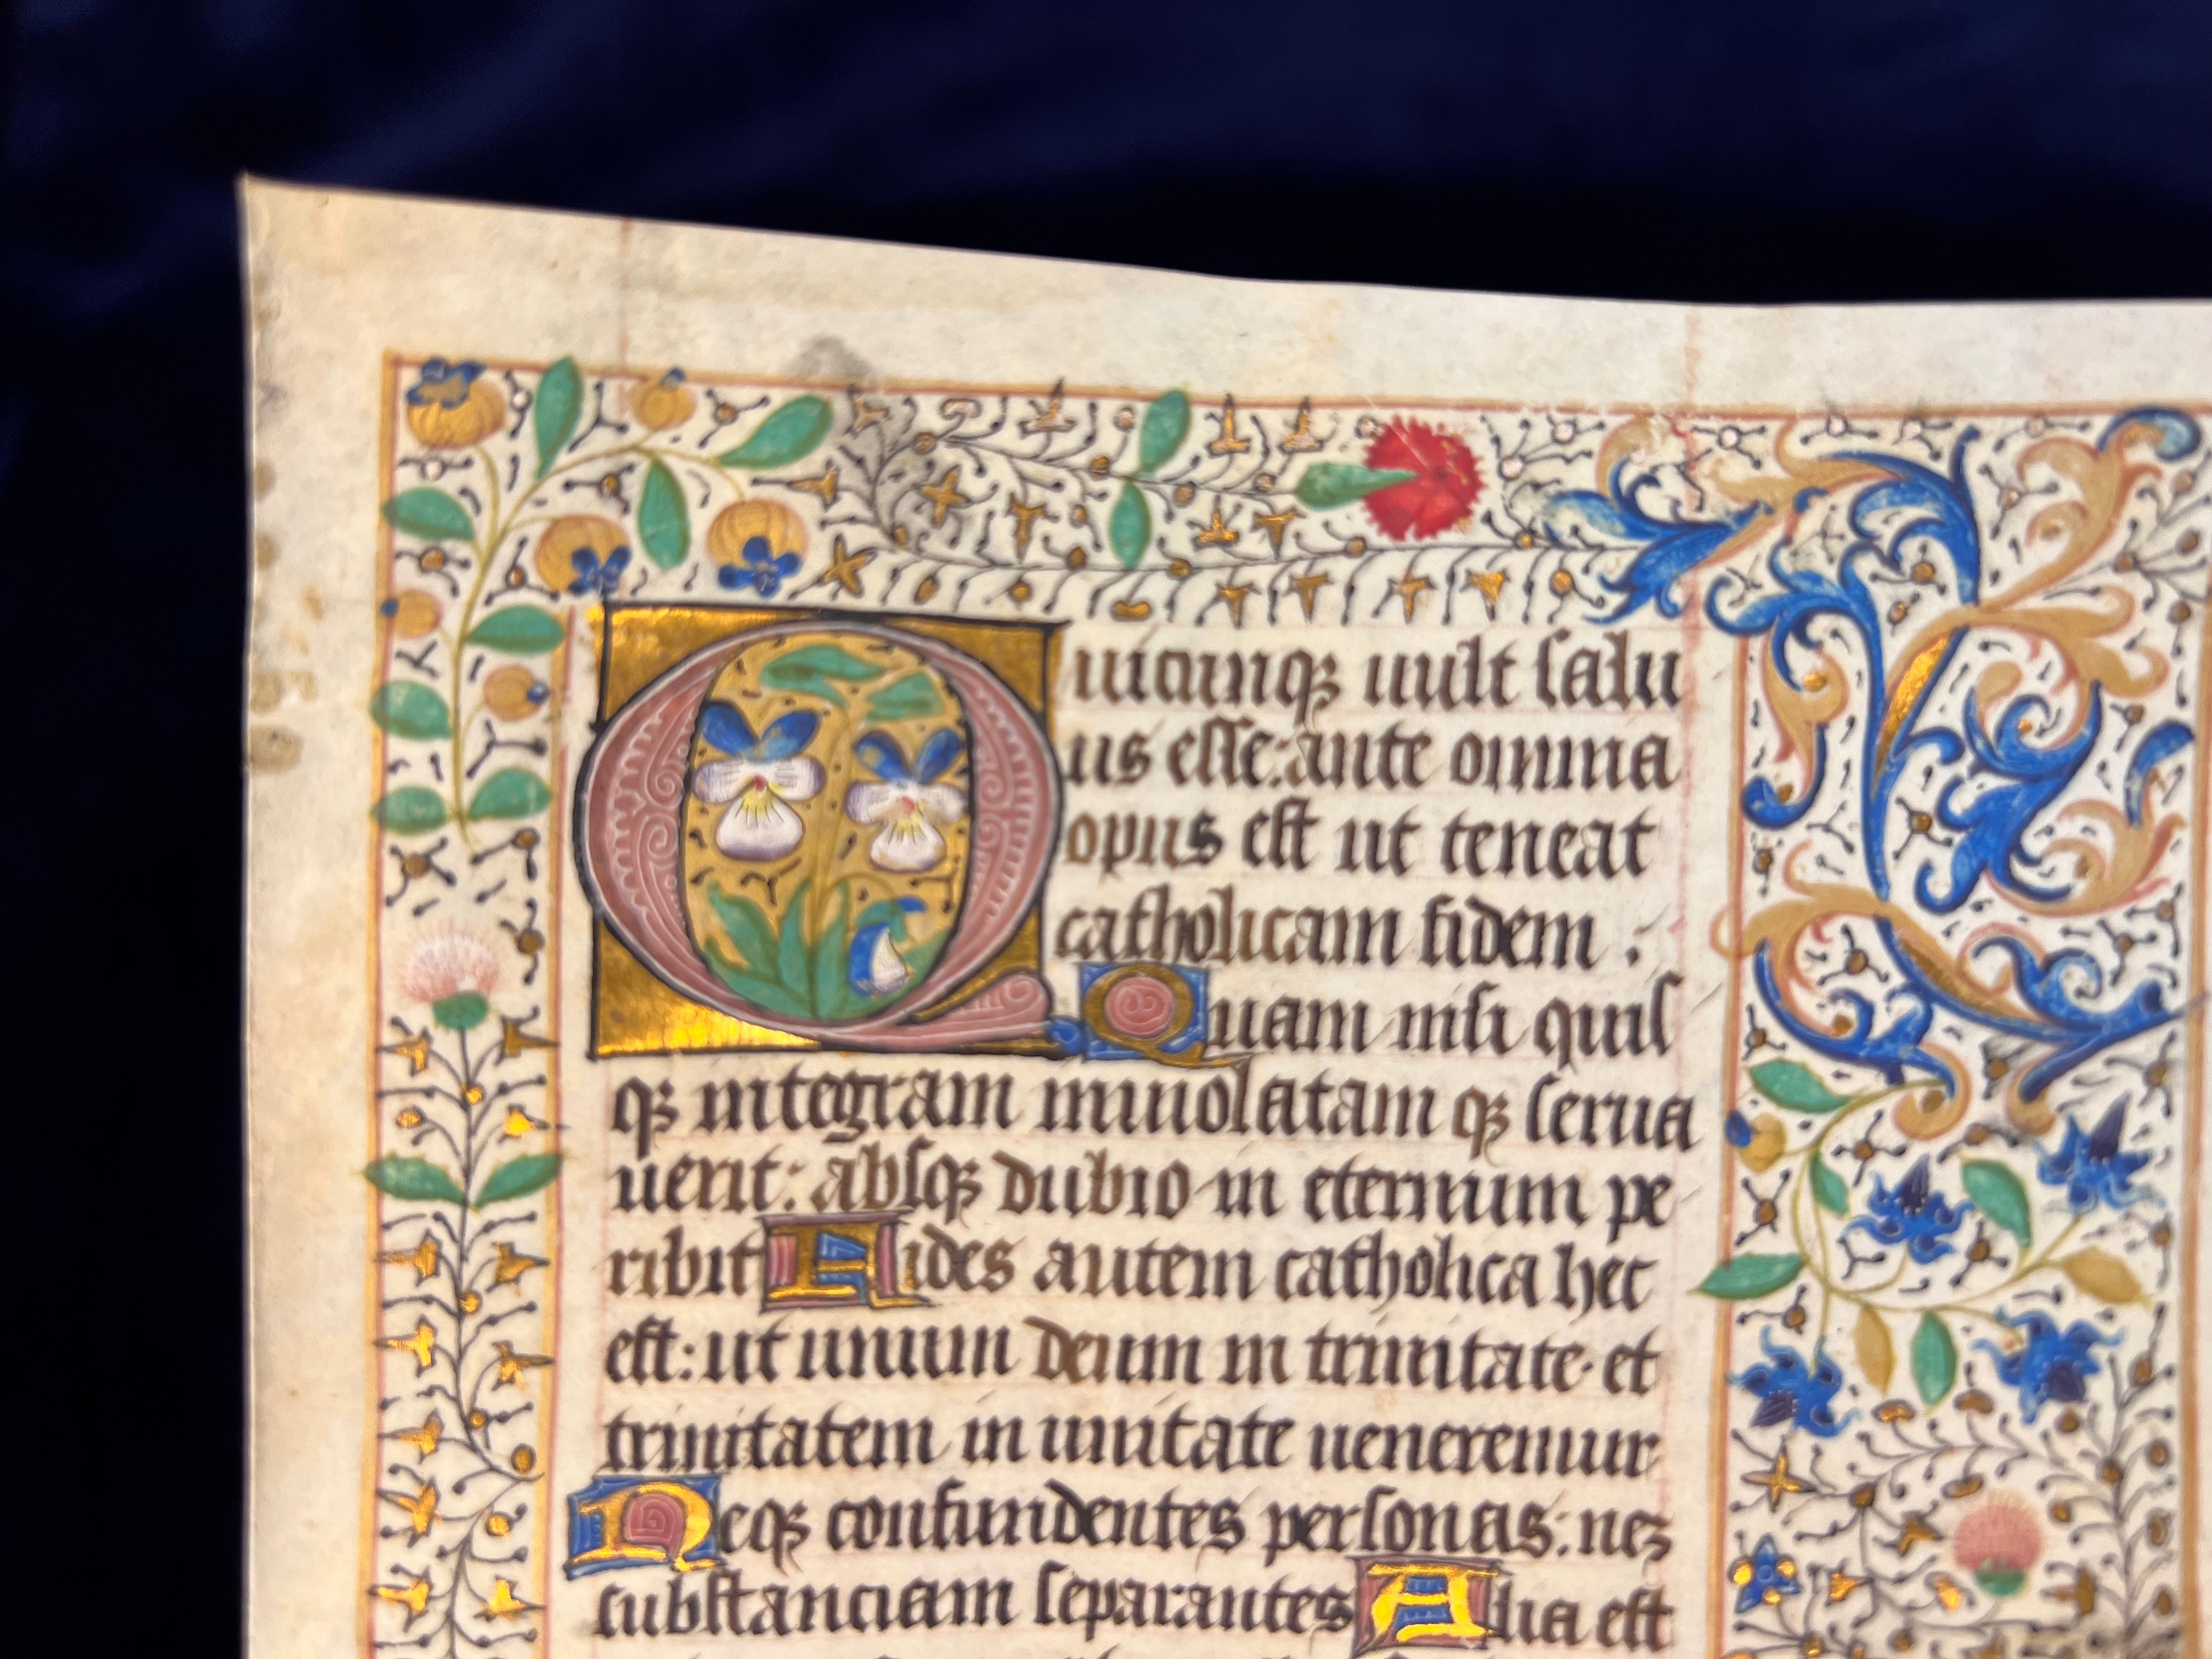 Quicunqꝫ uult ſalu
us eſſe: ante omnia
opus eſt ut teneat
catholicam fidem :
Quam niſi quiſ
qꝫ integram inuiolatam qꝫ ſerua
uerit: abſqꝫ dubio in eternum pe
ribit Fides autem catholica hec
eſt: ut unum deum in trinitate· et
trinitatem in unitate ueneremur
Neqꝫ confundentes perſonas: neqꝫ
ſubſtanciam ſeparantes Alia eſt